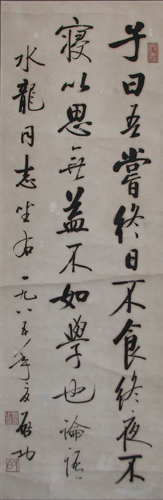 子曰吾嘗終日不食終夜不
寢以思無益不如學也論語
水龍同志坐右一九八五年夏啟功